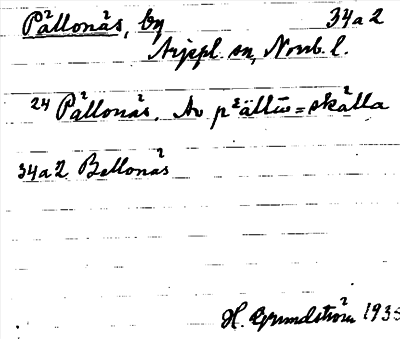 Pällonäs, by 34a2
Arjepl. sn, Norrb. l.
24 Pällonäs. Av pällū = skålla
34a2 Bellonäs
H. Grundström 1935